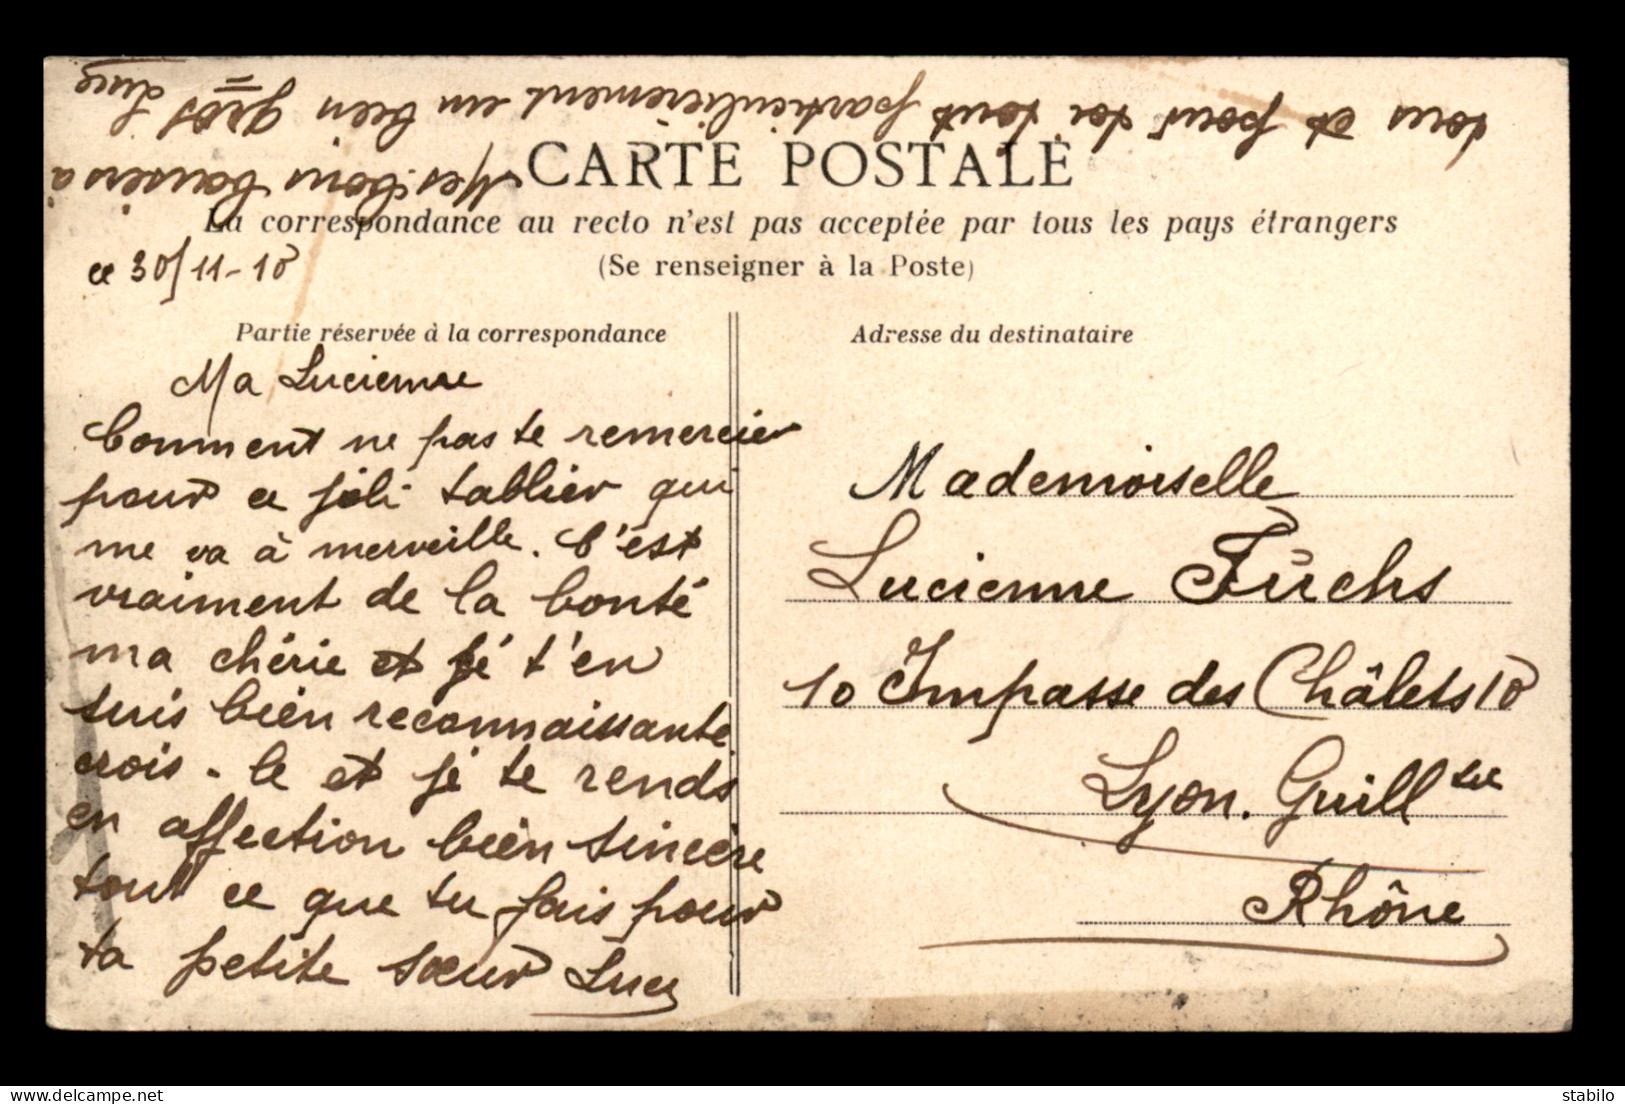 Mes bons baisers à
tous et pour toi tout particulièrement un bien gros Lucy
CARTE POSTALE
La correspondance au recto n'est pas acceptée par tous les pays étrangers
(Se renseigner à la Poste)
ce 30/11-10
Partie réservée à la correspondance
Ma Lucienne
Comment ne pas te remercier
pour ce joli tablier qui
me va à merveille. C'est
vraiment de la bonté
ma chérie et jé t'en
suis bién reconnaissante
crois-le et jé te rends
en affection bién sincère
tout ce que tu fais pour
ta petite sœur Lucy
Adresse du destinataire
Mademoiselle
Lucienne Fuchs
10 Impasse des Châlets 10
Lyon. Guill tre
Rhône
delcampe.net
stabilo